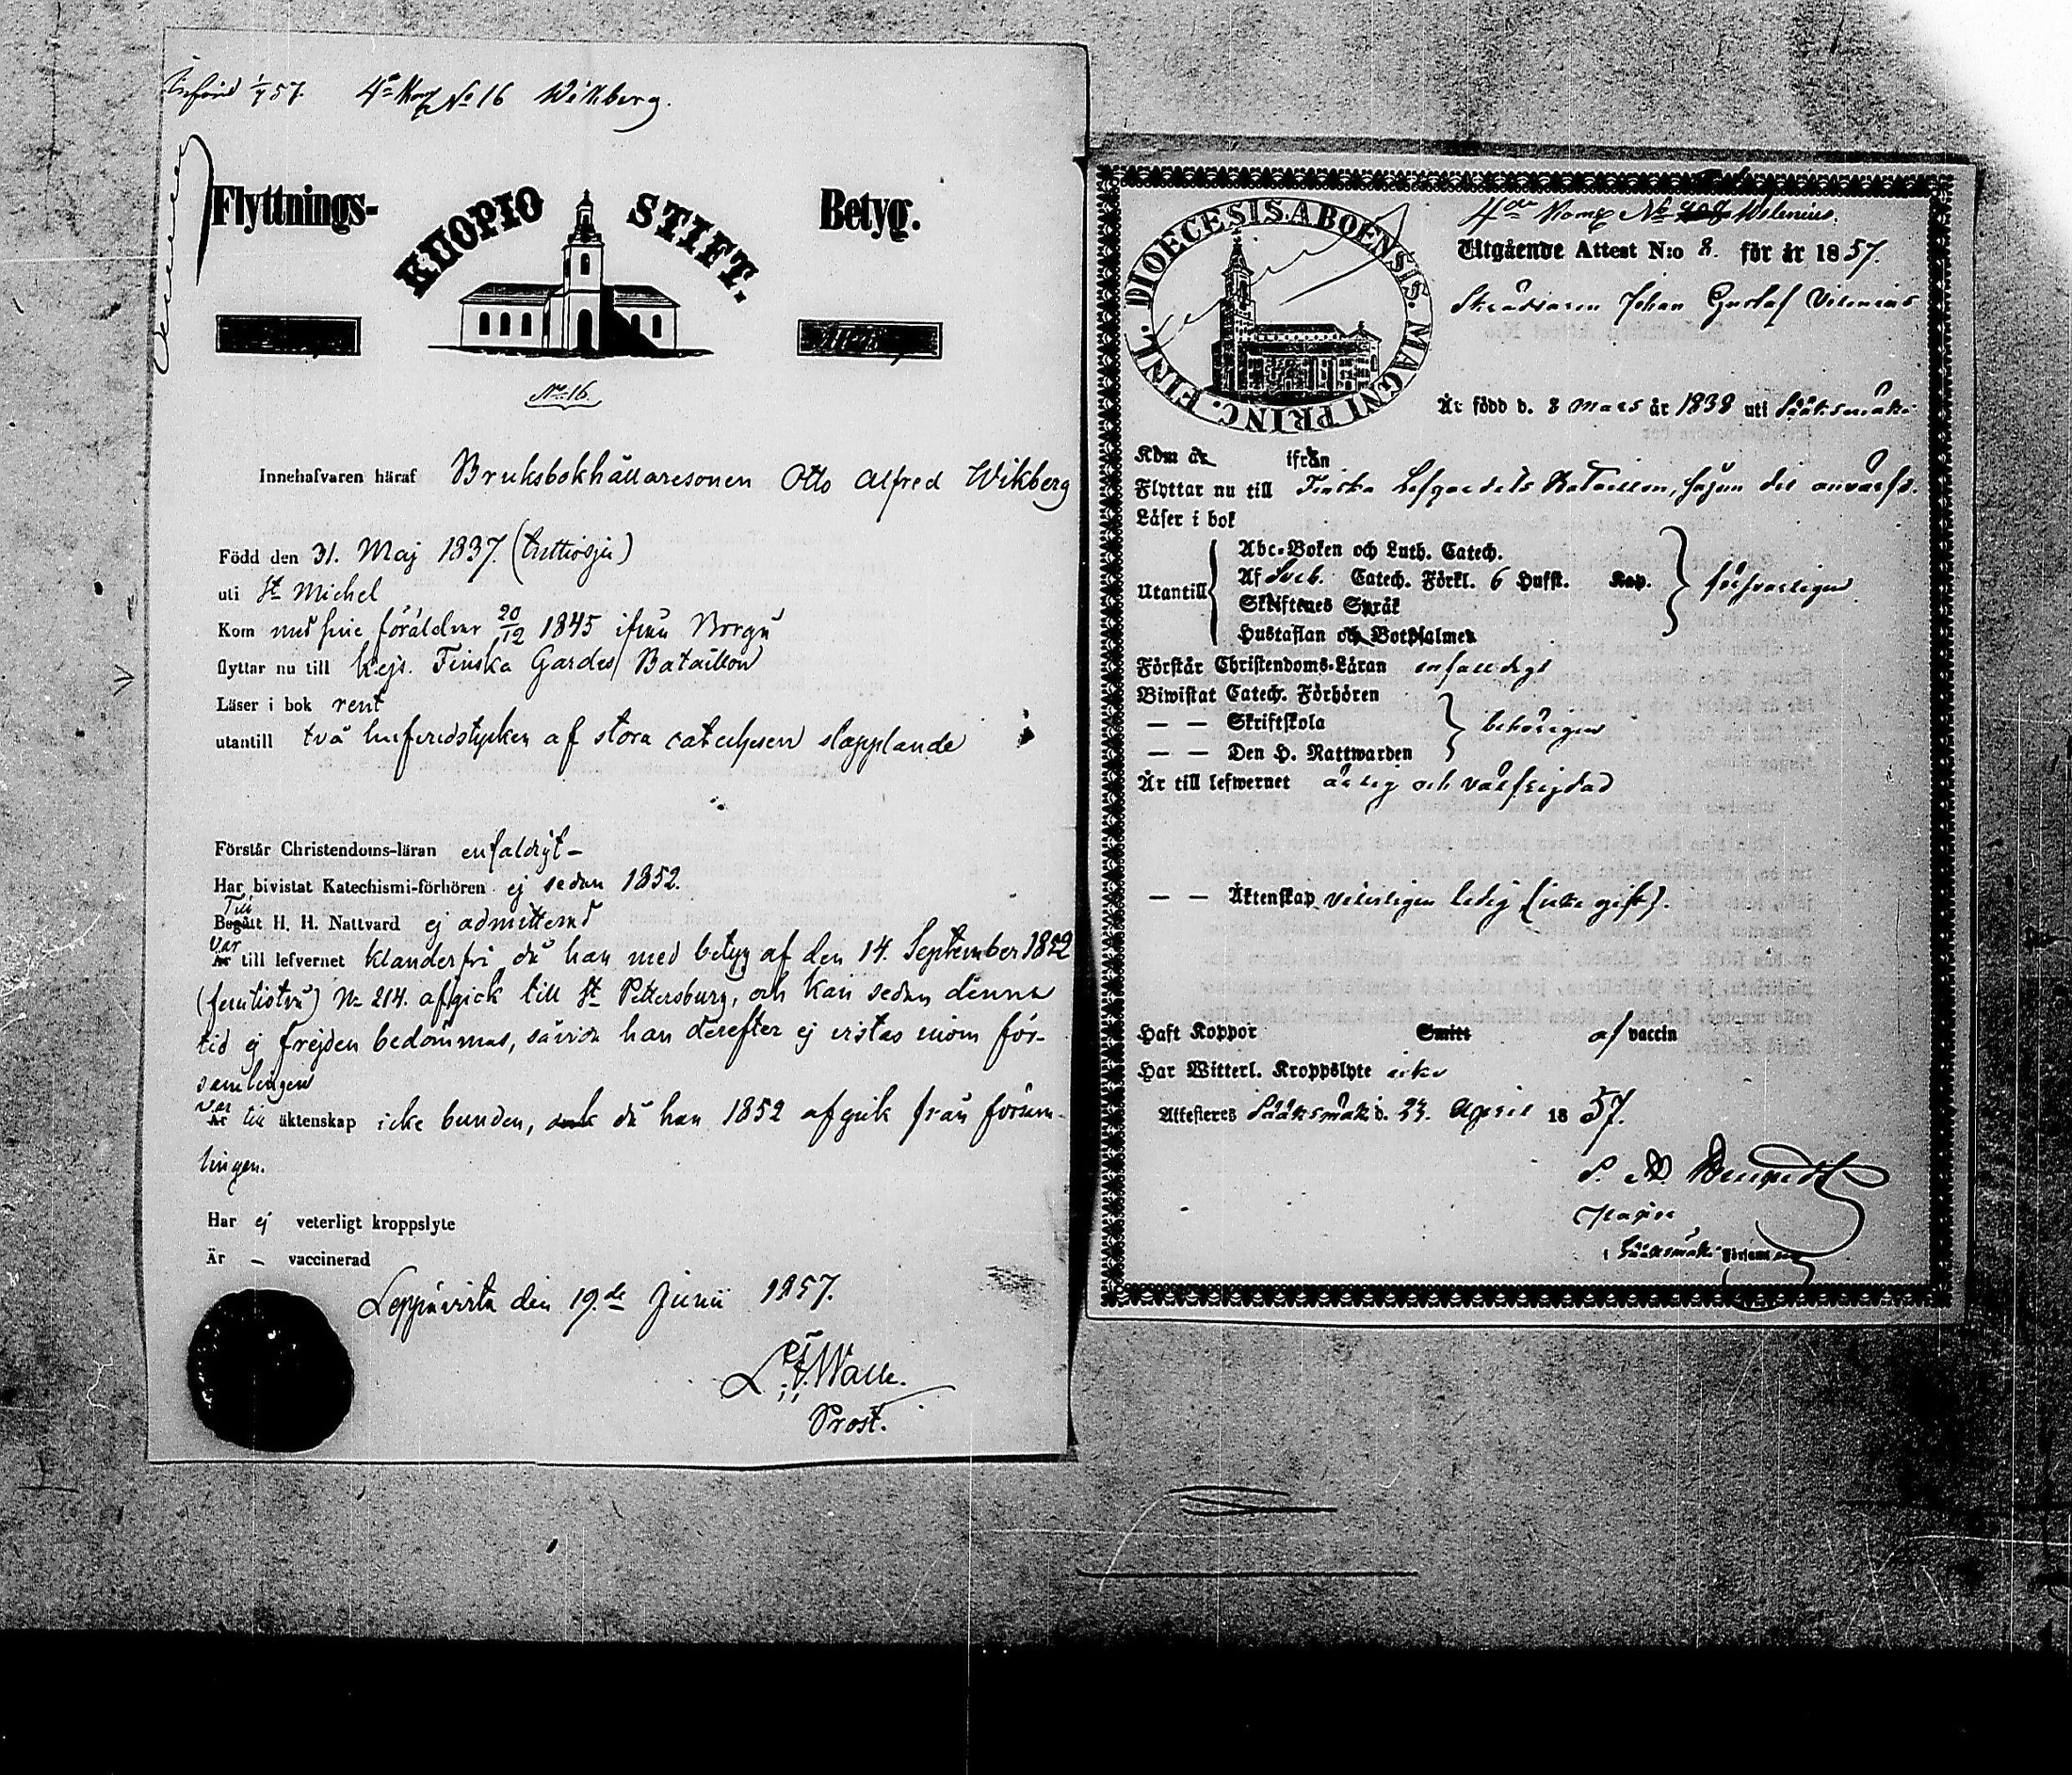 Införd 1/7 57. 4de Komp No 16 Wikberg.
Flyttnings- KUOPIO STIFT. Betyg.
No 16.
Innehafvaren häraf Bruksbokhållaresonen Otto Alfred Wikberg
Född den 31. Maj 1837. (trettiosju)
uti St Michel
Kom med sine föräldrar 20/12 1845 ifrån Borgå
flyttar nu till Kejs. Finska Gardes Bataillon
Läser i bok rent
utantill två hufvudstycken af stora catechesen slapplande
Förstår Christendoms-läran enfaldigt –
Har bivistat Katechismi-förhören ej sedan 1852.
Till
Begått H. H. Nattvard ej admitterad
Var
Är till lefvernet klanderfri, då han med betyg af den 14. September 1852
(femtiotvå) No 214. afgick till St Pettersburg, och kan sedan denna
tid ej frejden bedömmas, såvida han derefter ej vistas inom för-
samlingen
var
Är till äktenskap icke bunden, då han 1852 afgick från försam-
lingen.
Har ej veterligt kroppslyte
Är – vaccinerad
Leppävirta den 19.de Junii 1857.
Prost.
DIOECESIS ABOENSIS. MAGNI PRINC. FINL.
4de Komp No Wilenius.
Utgående Attest N:o 8. för år 1857.
Skräddaren Johan Gustaf Vilenius
Är född d. 8 Mars år 1838 uti Sääksmäki
Kom år ifrån
Flyttar nu till Finska Lifgardets Bataillon,
Läser i bok
Abc-Boken och Luth. Catech.
Utantill Af Sveb. Catech. Förkl. 6 Hufst. Kap. försvarligen
Skriftenes Språk
Hustaflan och Botpsalmer
Förstår Christendoms-Läran enfaldigt
Biwistat Catech. Förhören
— — Skriftskola behörigen
— — Den H. Nattwarden
Är till lefwernet ärlig och välfrejdad
— — Äktenskap veterligen ledig (icke gift).
Haft Koppor Smitt af vaccin
Har Witterl. Kroppslyte icke
Attesteras Sääksmäki d. 23. April 1857.
i Sääksmäki Församling